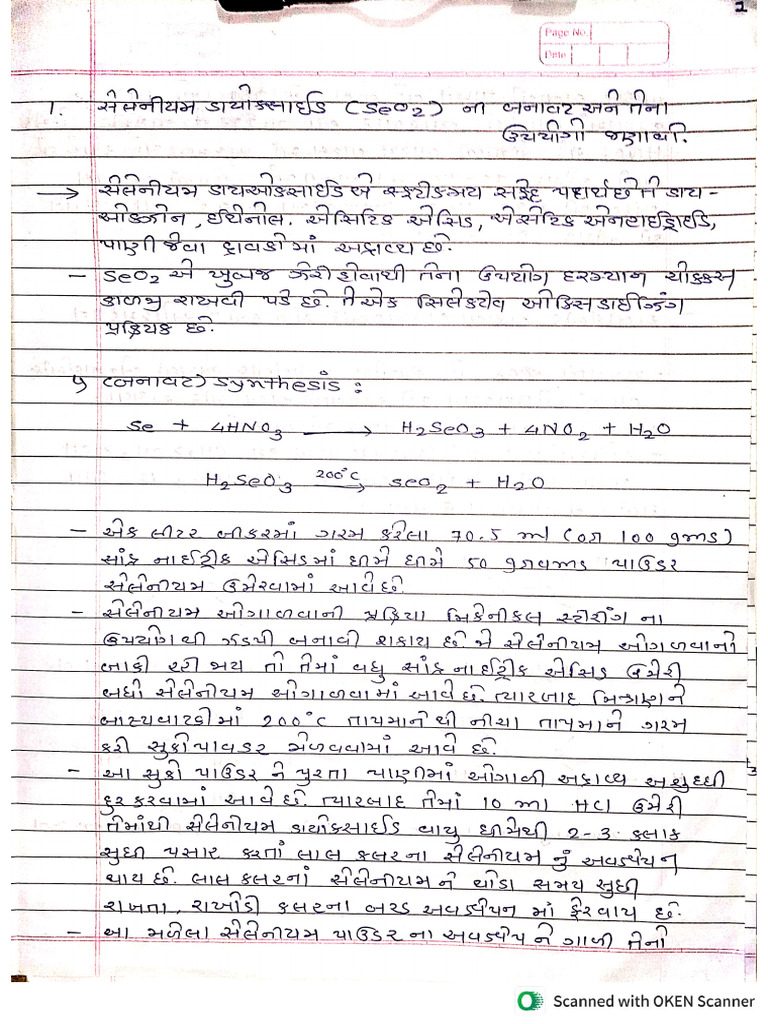 1
Page No.
Date
1. સેલેનીયમ ડાયોક્સાઈડ (SeO2) ની બનાવટ અને તેના
ઉપયોગો જણાવો.
→ સેલેનીયમ ડાયઓકસાઈડ એ સ્ફટીકમય સફેદ પદાર્થ છે તે ડાય-
ઓકઝોન, ઈથેનોલ. એસિટિક એસિડ, એસેટિક એનહાઈડ્રાઈડ,
પાણી જેવા દ્રાવકોમાં અદ્રાવ્ય છે.
- SeO2 એ ખુબજ ઝેરી હોવાથી તેના ઉપયોગ દરમ્યાન ચોકકસ
કાળજી રાખવી પડે છે. તે એક સિલેકટીવ ઓક્સિડાઈઝિંગ
પ્રક્રિયક છે.
(બનાવટ) synthesis :
Se + 4HNO3 → H2SeO3 + 4NO2 + H2O
H2SeO3 200°C → SeO2 + H2O
- એક લીટર બીકરમાં ગરમ કરેલા 70.5 ml (100 gms)
સાંદ્ર નાઈટ્રીક એસિડમાં ધીમે ધીમે 50 પાઉડર
સેલેનીયમ ઉમેરવામાં આવે છે.
- સેલેનીયમ ઓગાળવાની પ્રક્રિયા મિકેનીકલ સ્ટીરીંગ ના
ઉપયોગથી ઝડપી બનાવી શકાય છે. જો સેલેનીયમ ઓગળવાનો
બાકી રહી જાય તો તેમાં વધુ સાંદ્ર નાઈટ્રીક એસિડ ઉમેરી
બધો સેલેનીયમ ઓગાળવામાં આવે છે. ત્યારબાદ મિશ્રણને
બાષ્પવાટકીમાં 200°C તાપમાનેથી નીચા તાપમાને ગરમ
કરી સુકો પાવડર મેળવવામાં આવે છે.
- આ સુકો પાઉડર ને પુરતા પાણીમાં ઓગાળી અદ્રાવ્ય અશુધ્ધી
દુર કરવામાં આવે છે. ત્યારબાદ તેમાં 10 ml HCl ઉમેરી
તેમાંથી સેલેનીયમ ડાયોકસાઈડ વાયુ ધીમેથી 2-3 કલાક
સુધી પસાર કરતાં લાલ કલરના સેલેનીયમ નું અવક્ષેપન
થાય છે. લાલ કલરનાં સેલેનીયમ ને થોડા સમય સુધી
રાખતા, રાખોડી કલરના બરડ અવક્ષેપન માં ફેરવાય છે.
- આ મળેલા સેલેનીયમ પાઉડર ના અવક્ષેપ ને ગાળી તેનો
Scanned with OKEN Scanner